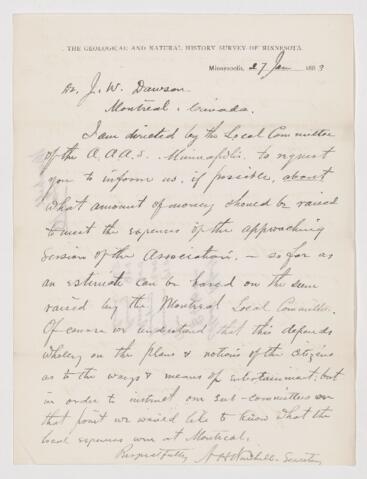 THE GEOLOGICAL AND NATURAL HISTORY SURVEY OF MINNESOTA.
Minneapolis, 27 Jan 1883
Dr. J. W. Dawson
Montreal, Canada.
I am directed by the Local Committee
of the A.A.A.S. Minneapolis, to request
you to inform us, if possible, about
what amount of money should be raised
to meet the expenses of the approaching
Session of the Association, — so far as
an estimate can be based on the sum
raised by the Montreal Local Committee.
Of course we understand that this depends
wholly on the plans & notions of the citizens
as to the ways & means of entertainment; but
in order to instruct our sub-committees on
that point we would like to know what the
local expenses were at Montreal.
Respectfully N H Winchell - Secretary